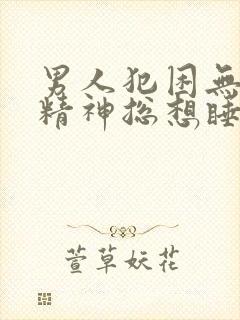 男人犯困無
精神总想睡
萱草妖花